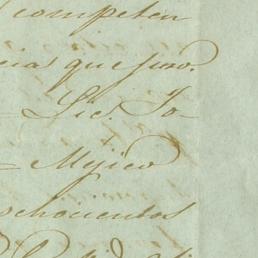 competen
cias que juro.
Lic. Jo-
Mejico
ochocientos